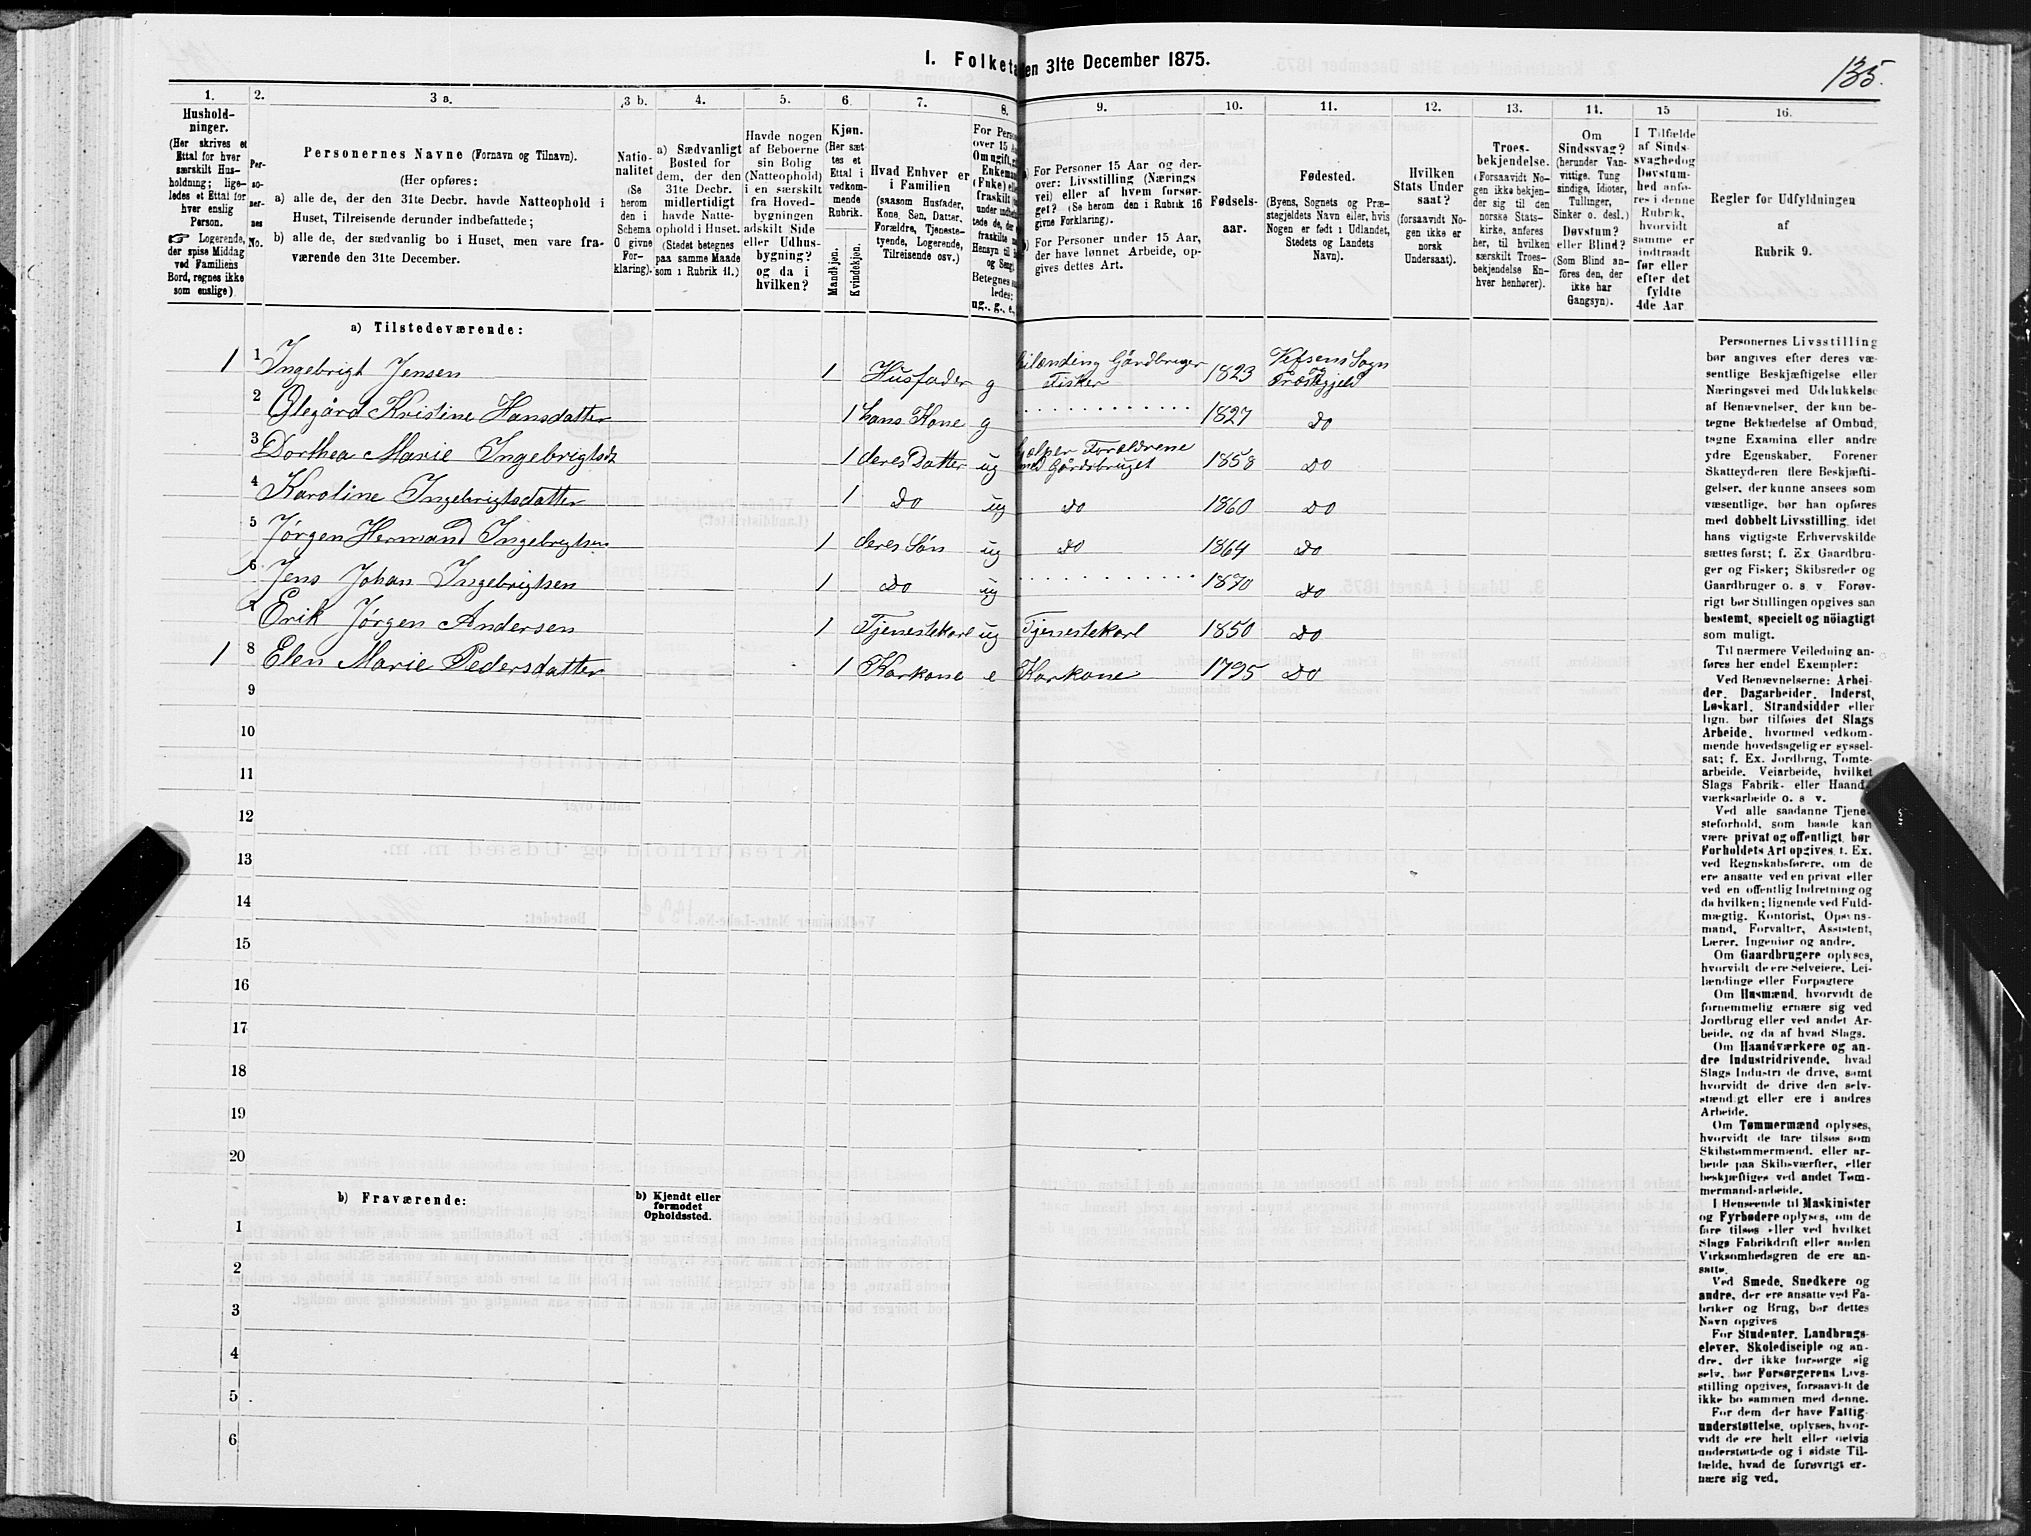 I. Folketæ
den 31te December 1875.
135.
1.
2.
3 a.
3 b.
4.
5.
6.
7.
8.
9.
10.
11.
12.
13.
14.
15
16.
Hushold-
ninger.
(Her skrives et
Ettal for hver
særskilt Hus-
holdning; lige-
ledes et Ettal for
hver enslig
Person.
☞ Logerende,
der spise Middag
ved Familiens
Bord, regnes ikke
som enslige).
Per-
so-
ner-
nes
No.
Personernes Navne (Fornavn og Tilnavn).
(Her opføres:
a) alle de, der den 31te Decbr. havde Natteophold i
Huset, Tilreisende derunder indbefattede;
b) alle de, der sædvanlig bo i Huset, men vare fra-
værende den 31te December.
Natio-
nalitet
(Se
herom
den i
Schema
O givne
For-
klaring).
a) Sædvanligt
Bosted for
dem, der den
31te Decbr.
midlertidigt
havde Natte-
ophold i Huset.
(Stedet betegnes
paa samme Maade
som i Rubrik 11.)
Havde nogen
af Beboerne
sin Bolig
(Natteophold)
i en særskilt
fra Hoved-
bygningen
adskilt Side
eller Udhus-
bygning?
og da i
hvilken?
Kjøn.
(Her sæt-
tes et
Ettal i
vedkom-
mende
Rubrik.
Mandkjøn.
Kvindekjøn.
Hvad Enhver er
i Familien
(saasom Husfader,
Kone, Søn, Datter,
Forældre, Tjeneste-
tyende, Logerende,
Tilreisende osv.)
For Perso
over 15 A
Om ugift, g
Enkeman
(Fnke) ell
fraskilt
og Seng
Betegnes
ledes:
ug., g., e.,
a) For Personer 15 Aar og der-
over: Livsstilling (Nærings
vei) eller af hvem forsør-
get? (Se herom den i Rubrik 16
givne Forklaring).
b) For Personer under 15 Aar,
der have lønnet Arbeide, op-
gives dettes Art.
Fødsels-
aar.
Fødested.
(Byens, Sognets og Præ-
stegjeldets Navn eller, hvis
Nogen er født i Udlandet,
Stedets og Landets
Navn).
Hvilken
Stats Under
saat?
(forsaavidt No-
gen ikke er
norsk
Undersaat).
Troes-
bekjendelse.
(Forsaavidt No-
gen ikke bekjen-
der sig til den
norske Stats-
kirke, anføres
her, til hvilken
særskilt Troes-
bekjendelse En-
hver henhører).
Om
Sindssvag?
(herunder Van-
vittige, Tung
sindige, Idioter,
Tullinger,
Sinker o. desl.)
Døvstum?
eller Blind?
(Som Blind an-
føres den, der
ikke har
Gangsyn).
I Tilfælde
af Sinds-
svaghed og
Døvstum-
hed anfø-
res i denne
Rubrik,
hvorvidt
samme er
indtraadt
før eller
efter det
fyldte
4de Aar
Regler for Udfyldningen
af
Rubrik 9.
a) Tilstedeværende:
1 1 Ingebrigt Jensen 1 Husfader g Leilænding Gårdbruger Fisker 1823 Vefsens Sogn og Præstegjeld
2 Olegård Kristine Hansdatter 1 hans Kone g 1827 Do
3 Dorthea Marie Ingebrigtsdt 1 deres Datter ug hjelper Forældrene med Gårdsbruget 1858 Do
4 Karoline Ingebrigtsdatter 1 Do ug Do 1860 Do
5 Jørgen Hermand Ingebrigtsen 1 deres Søn ug Do 1864 Do
6 Jens Johan Ingebrigtsen 1 Do ug 1870 Do
7 Erik Jørgen Andersen 1 Tjenestekarl ug Tjenestekarl 1850 Do
1 8 Elen Marie Pedersdatter 1 Karkone e Karkone 1795 Do
9
10
11
12
13
14
15
16
17
18
19
20
b) Fraværende:
b) Kjendt eller
formodet
Opholdssted.
1
2
3
4
5
6
Personernes Livsstilling
bør angives efter deres væ-
sentlige Beskjæftigelse eller
Næringsvei med Udelukkelse
af Benævnelser, der kun be-
tegne Beklædelse af Ombud,
tagne Examina eller andre
ydre Egenskaber. Forener
Skatteyderen flere Beskjæfti-
gelser, der kunne ansees som
væsentlige, bør han opføres
med dobbelt Livsstilling, idet
hans vigtigste Erhvervskilde
sættes først; f. Ex. Gaardbru-
ger og Fisker; Skibsreder og
Gaardbruger o. s. v. Forøv-
rigt bør Stillingen opgives saa
bestemt, specielt og nöiagtigt
som muligt.
Til nærmere Veiledning an-
føres her endel Exempler:
Ved Benævnelserne: Arbei-
der, Dagarbeider, Inderst,
Løskarl, Strandsidder eller
lign. bør tilføies det Slags
Arbeide, hvormed vedkom-
mende hovedsagelig er syssel-
sat; f. Ex. Jordbrug, Tomte-
arbeide, Veiarbeide, hvilket
Slags Fabrik- eller Haand-
værksarbeide o. s. v.
Ved alle saadanne Tjene-
steforhold, som baade kan
være privat og offentligt, bør
Forholdets Art opgives, f. Ex.
ved Regnskabsførere, om de
ere ansatte ved en privat eller
ved en offentlig Indretning og
da hvilken; lignende ved Fuld-
mægtig, Kontorist, Opsyns-
mand, Forvalter, Assistent,
Lærer, Ingeniør og andre.
Om Gaardbrugere oplyses,
hvorvidt de ere Selveiere, Lei-
lændinge eller Forpagtere
Om Husmænd, hvorvidt de
fornemmelig ernære sig ved
Jordbrug eller ved andet Ar-
beide, og da af hvad Slags.
Om Haandværkere og an-
dre Industridrivende, hvad
Slags Industri de drive, samt
hvorvidt de drive den selv-
stændigt eller ere i andres
Arbeide.
Om Tømmermænd oplyses,
hvorvidt de fare tilsøs som
Skibstømmermænd, eller ar-
beide paa Skibsværfter, eller
beskjæftiges ved andet Tøm-
mermand-arbeide.
I Henseende til Maskinister
og Fyrbødere oplyses, om de
fare tilsøs eller ved hvilket
Slags Fabrikdrift eller anden
Virksomhedsgren de ere an-
satte.
Ved Smede, Snedkere og
andre, der ere ansatte ved Fa-
briker og Brug, bør dettes
Navn opgives
For Studenter, Landbrugs-
elever, Skoledisciple og an-
dre, der ikke forsørge sig
selv, bør Forsørgerens Livs-
stilling opgives, forsaavidt de
ikke bo sammen med denne.
For dem, der have Fattig-
understøttelse, oplyses, hvor-
vidt de ere helt eller delvis
understøttede og i sidste Til-
fælde, hvad de forøvrigt er-
nære sig ved.